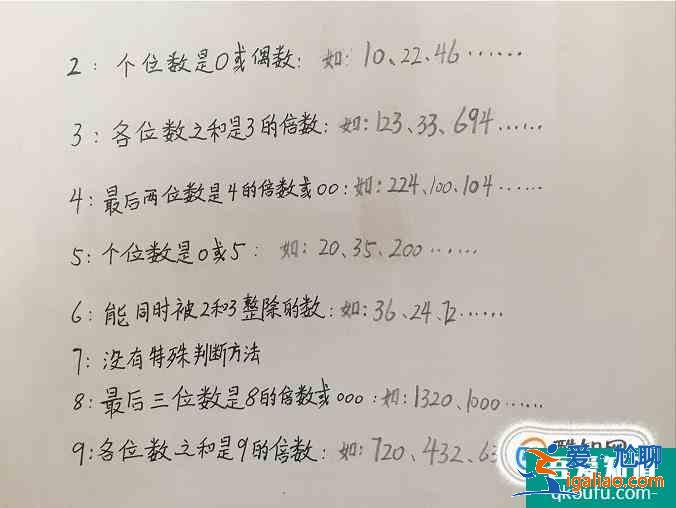 2：个位数是0或偶数：如：10、22、46……
3：各位数之和是3的倍数：如：123、33、694……
4：最后两位数是4的倍数或00：如：224、100、104……
5：个位数是0或5：如：20、35、200……
6：能同时被2和3整除的数：如：36、24、72……
7：没有特殊判断方法
8：最后三位数是8的倍数或000：如：1320、1000……
9：各位数之和是9的倍数：如：720、432、63
爱尬聊
igaliao.com
qkoufu.com